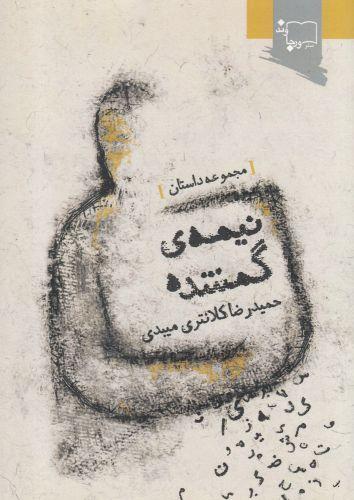 ورجاوند
[ مجموعه داستان ]
نیمه‌ی
گمشده
حمیدرضا کلانتری میبدی